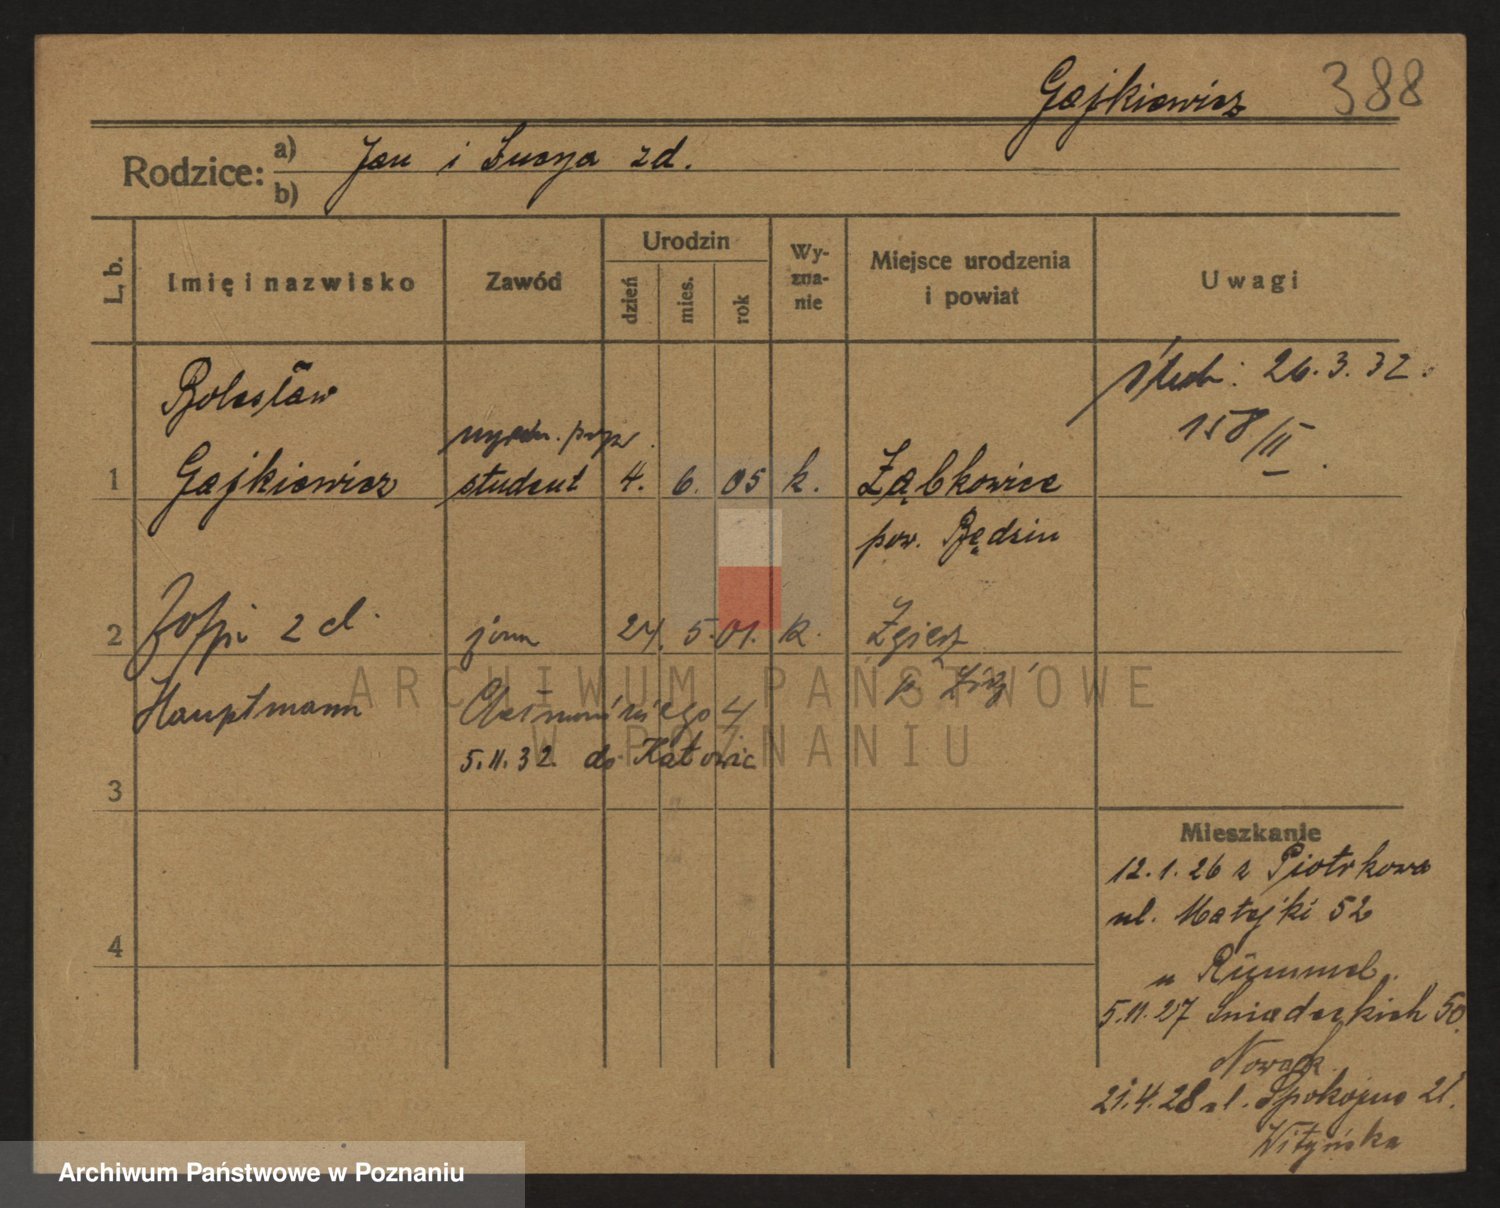 Gajkiewicz 388
Rodzice: a) Jan i Łucya zd.
b)
L. b. Imię i nazwisko Zawód Urodzin dzień mies. rok Wy-zna-nie Miejsce urodzenia i powiat Uwagi
Bolesław
ślub: 26.3.32.
158/II.
1 Gajkiewicz student 4. 6. 05 k. Ząbkowice
pow. Będzin
2 Zofji zd. żona 24. 5. 01. k. Zgierz
Hauptmann p. Łódź
4
5.11.32. do Katowic
3
Mieszkanie
12.1.26 z Piotrkowa
ul. Matejki 52
4
u Rümmel.
5.11.27 Śniadeckich 50.
Nowak.
21.4.28 ul. Spokojna 21.
Wityńska
ARCHIWUM PAŃSTWOWE
W POZNANIU
Archiwum Państwowe w Poznaniu